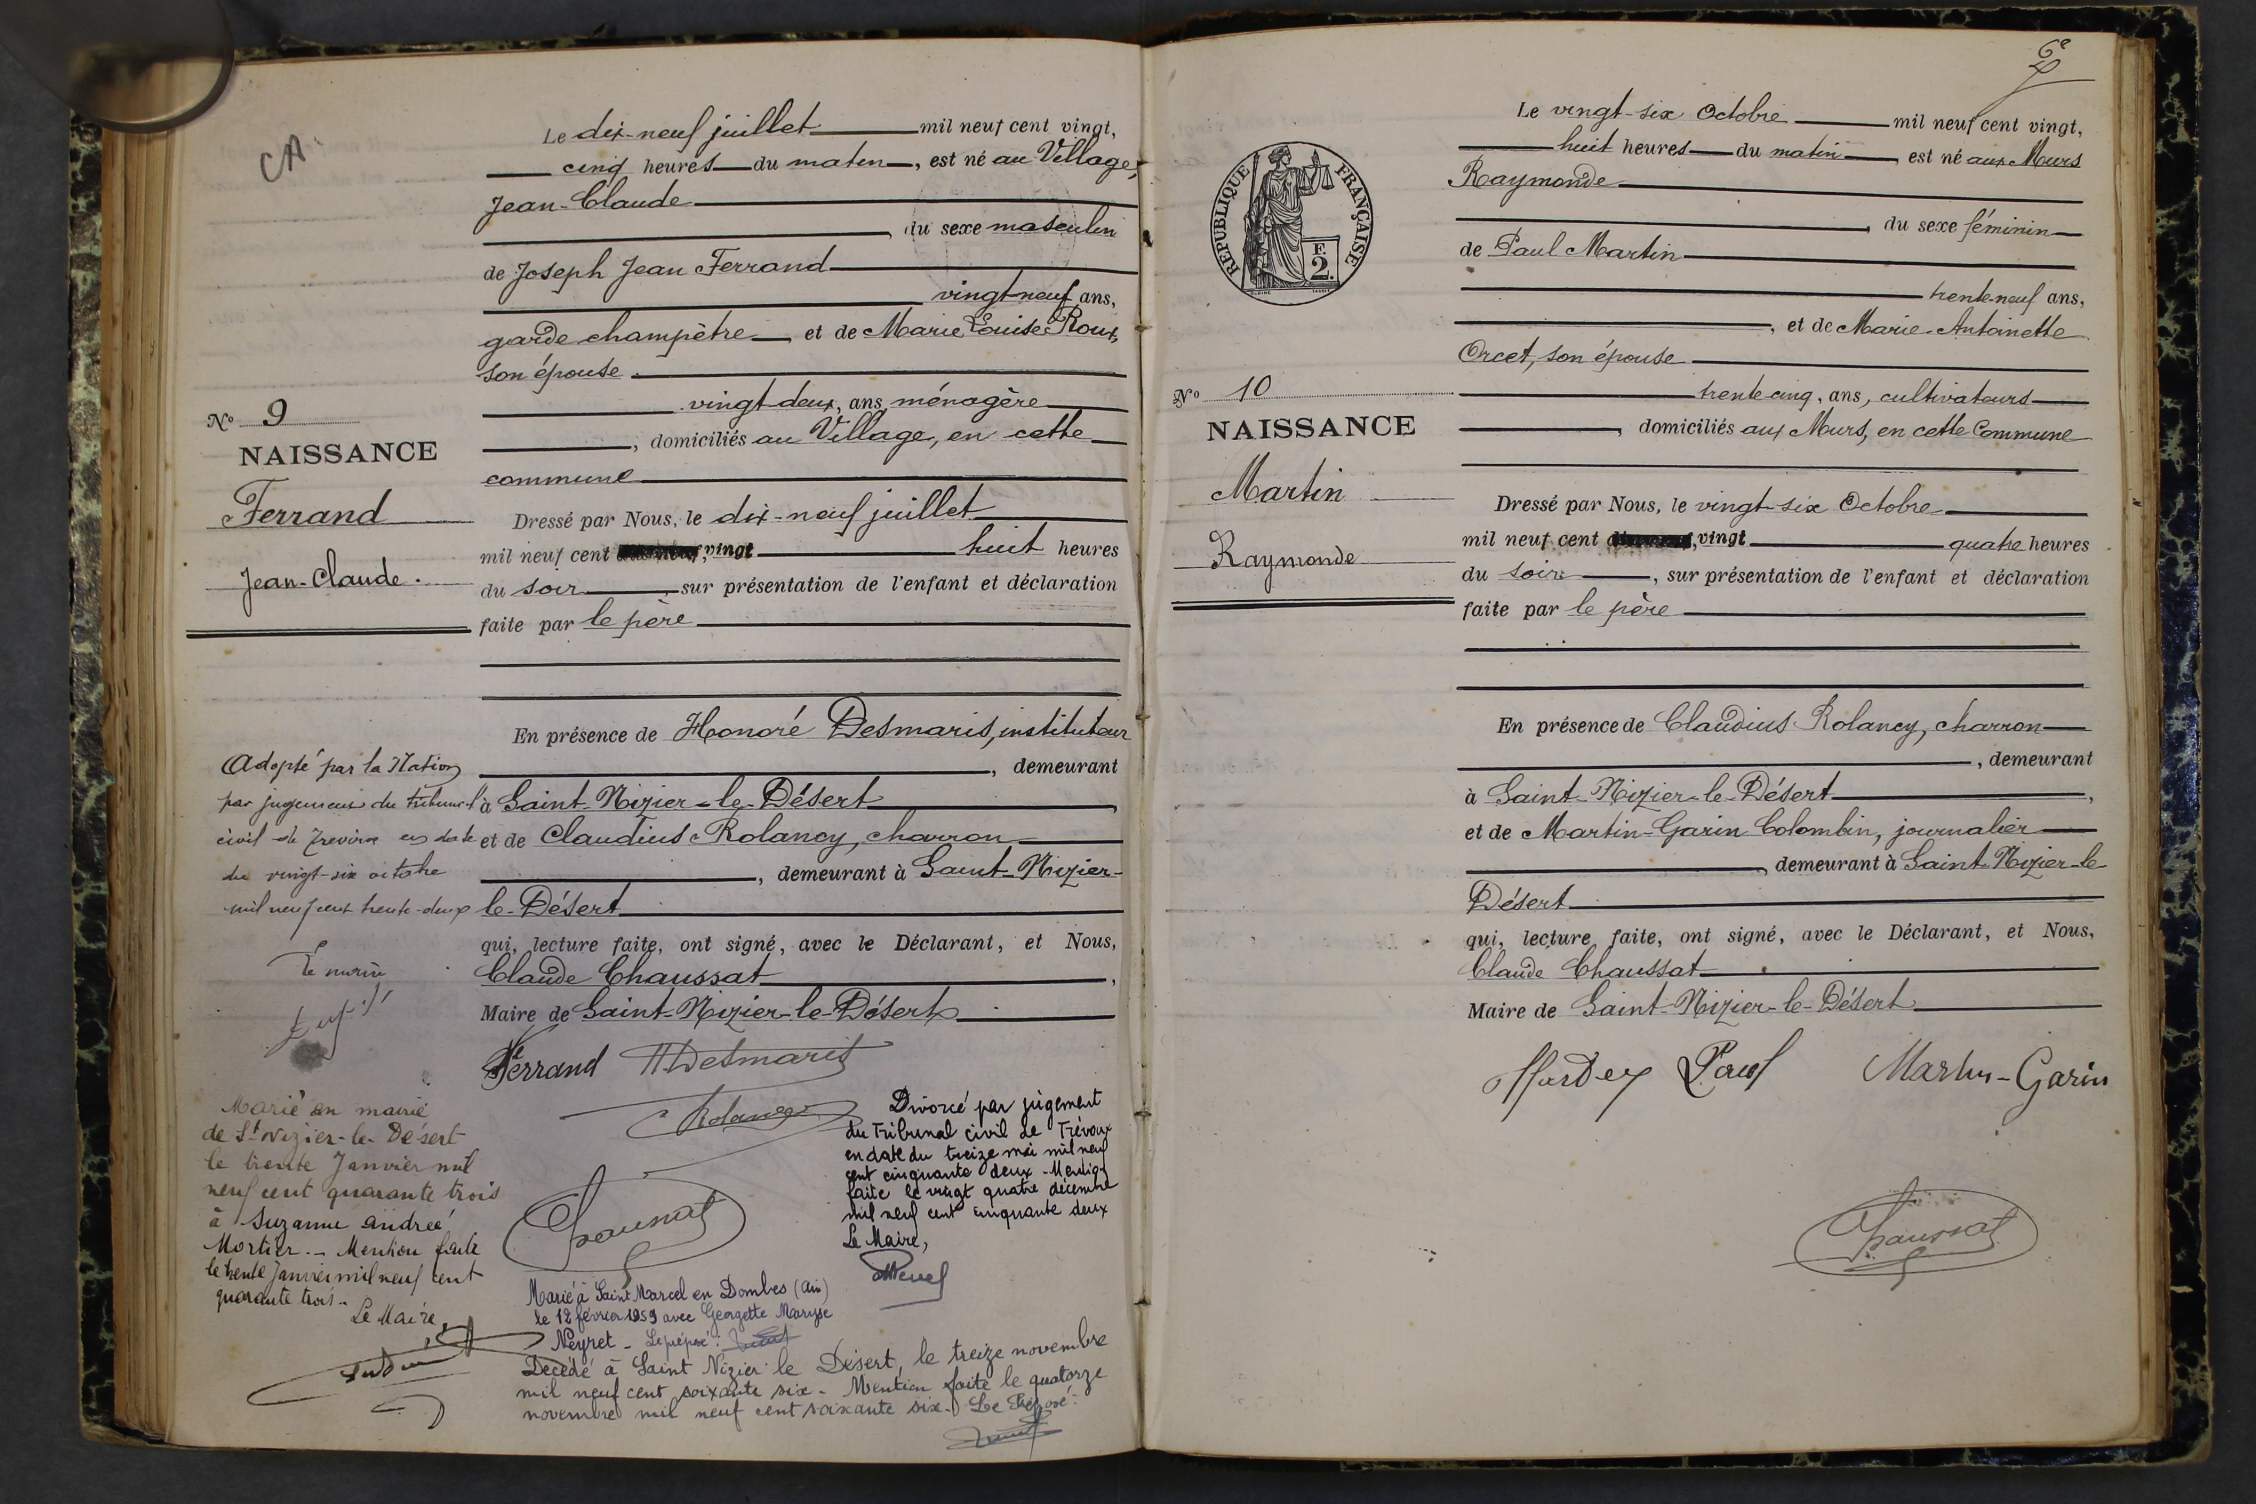 CA.
Le dix-neuf juillet mil neuf cent vingt,
cinq heures du matin, est né au Village,
Jean-Claude
du sexe masculin
de Joseph Jean Ferrand
vingt-neuf ans,
garde champêtre et de Marie Louise Roux,
son épouse
vingt-deux, ans, ménagère
, domiciliés au Village, en cette
commune
Dressé par Nous, le dix-neuf juillet
mil neuf cent vingt huit heures
du soir, sur présentation de l'enfant et déclaration
faite par le père
En présence de Honoré Desmaris, instituteur
, demeurant
à Saint-Nizier-le-Désert,
et de Claudius Rolancy, charron
, demeurant à Saint-Nizier-
le-Désert
qui, lecture faite, ont signé, avec le Déclarant, et Nous,
Claude Chaussat,
Maire de Saint-Nizier-le-Désert
Ferrand HDesmaris
Rolancy
Chaussat
No 9
NAISSANCE
Ferrand
Jean-Claude.
Adopté par la Nation
par jugement du tribunal
civil de Trévoux en date
du vingt-six octobre
mil neuf cent trente-deux
Le maire
Marié en mairie
de St Nizier-le-Désert
le trente Janvier mil
neuf cent quarante trois
à Suzanne Andrée
Mortier.- Mention faite
le trente Janvier mil neuf cent
quarante trois-
Le Maire,
Divorcé par jugement
du Tribunal civil de Trévoux
en date du treize mai mil neuf
cent cinquante deux - Mention
faite le vingt quatre décembre
mil neuf cent cinquante deux
Le Maire,
Marié à Saint Marcel en Dombes (Ain)
le 12 février 1959 avec Georgette Maryse
Neyret - Le préposé:
Décédé à Saint Nizier le Désert, le treize novembre
mil neuf cent soixante six - Mention faite le quatorze
novembre mil neuf cent soixante six. Le Préposé:
RÉPUBLIQUE FRANÇAISE
F.
2.
Le vingt-six Octobre mil neuf cent vingt,
huit heures du matin, est né aux Murs
Raymonde
, du sexe féminin
de Paul Martin
trente-neuf ans,
, et de Marie-Antoinette
Orcet, son épouse
trente cinq, ans, cultivateurs
, domiciliés aux Murs, en cette Commune
Dressé par Nous, le vingt-six Octobre
mil neuf cent vingt quatre heures
du soir, sur présentation de l'enfant et déclaration
faite par le père
En présence de Claudius Rolancy, charron
, demeurant
à Saint-Nizier-le-Désert,
et de Martin-Garin Colombin, journalier
, demeurant à Saint-Nizier-le
Désert
qui, lecture faite, ont signé, avec le Déclarant, et Nous,
Claude Chaussat
Maire de Saint-Nizier-le-Désert
Paul Martin-Garin
Chaussat
No 10
NAISSANCE
Martin
Raymonde